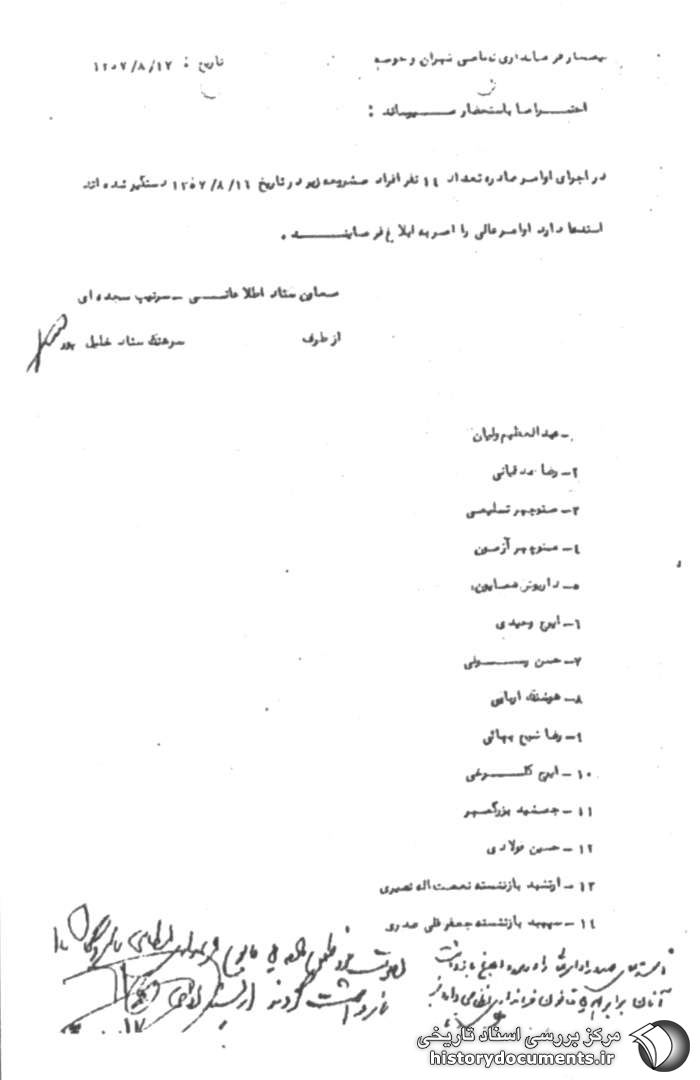 تیمسار فرمانداری نظامی تهران و حومه
تاریخ : ۱۳۵۷/۸/۱۷
احتراما باستحضار میرساند :
در اجرای اوامر صادره تعداد ۱٤ نفر افراد مشروحه زیر در تاریخ ۱۳۵۷/۸/۱٦ دستگیر شده اند
استدعا دارد اوامر عالی را امر به ابلاغ فرمایند .
معاون ستاد اطلاعاتی ــ سرتیپ سجده ای
از طرف سرهنگ ستاد خلیل پور
ــ عبدالعظیم ولیان
۲ــ رضا صدقیانی
۳ــ منوچهر تسلیمی
٤ــ منوچهر آزمون
۵ــ داریوش همایون
٦ــ ایرج وحیدی
۷ــ حسن رسولی
۸ــ هوشنگ
۹ــ رضا شیخ بهائی
۱۰ــ ایرج گلسرخی
۱۱ــ جمشید بزرگمهر
۱۲ــ حسین فولادی
۱۳ــ ارتشبد بازنشسته نعمت اله نصیری
۱٤ــ سپهبد بازنشسته جعفرقلی صدری
آنان برابر قانون فرمانداری نظامی
بازداشت گردند
مرکز بررسی اسناد تاریخی
historydocuments.ir